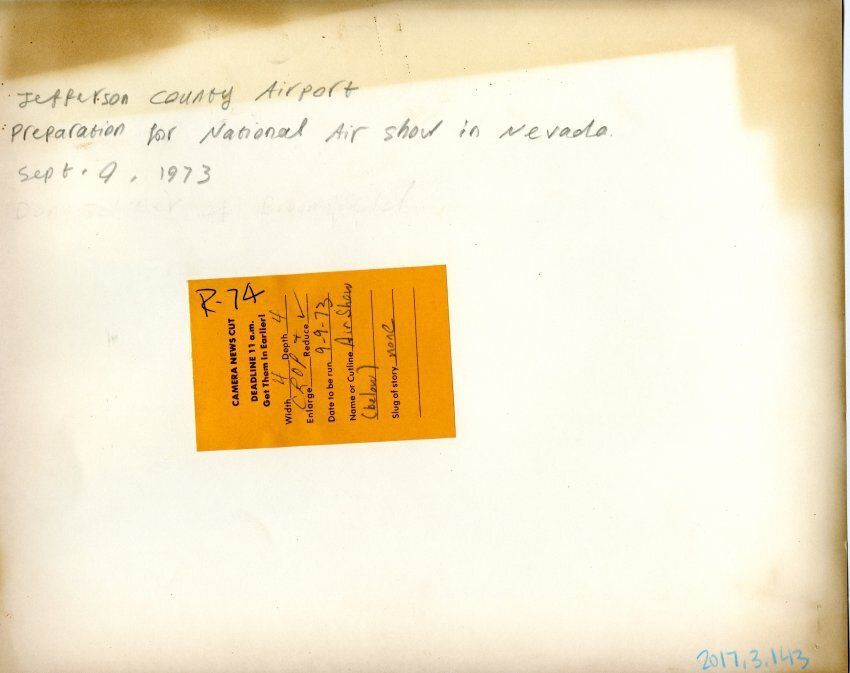 Jefferson County Airport
Preparation for National Air show in Nevada.
Sept. 9, 1973
Don of Broomfield
P. 74
CAMERA NEWS CUT
DEADLINE 11 a.m.
Get Them in Earlier!
Width 4 Depth 4
CROP +
Enlarge Reduce ✓
Date to be run 9-9-73
Name or Cutline Air Show
(below)
Slug of story none
2017.3.143